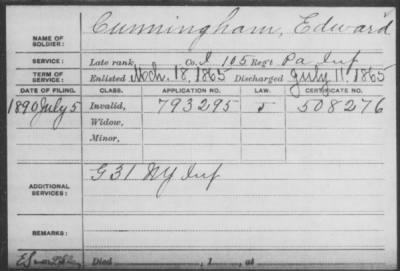 NAME OF SOLDIER: Cunningham, Edward
SERVICE: Late rank, Co. I, 105 Reg't Pa Inf
TERM OF SERVICE: Enlisted Mch. 18, 1865 Discharged July 11, 1865
DATE OF FILING. CLASS. APPLICATION NO. LAW. CERTIFICATE NO.
1890 July 5 Invalid, 793295 J 508276
Widow,
Minor,
ADDITIONAL SERVICES: G 31 NY Inf
REMARKS:
Died , 1 , at